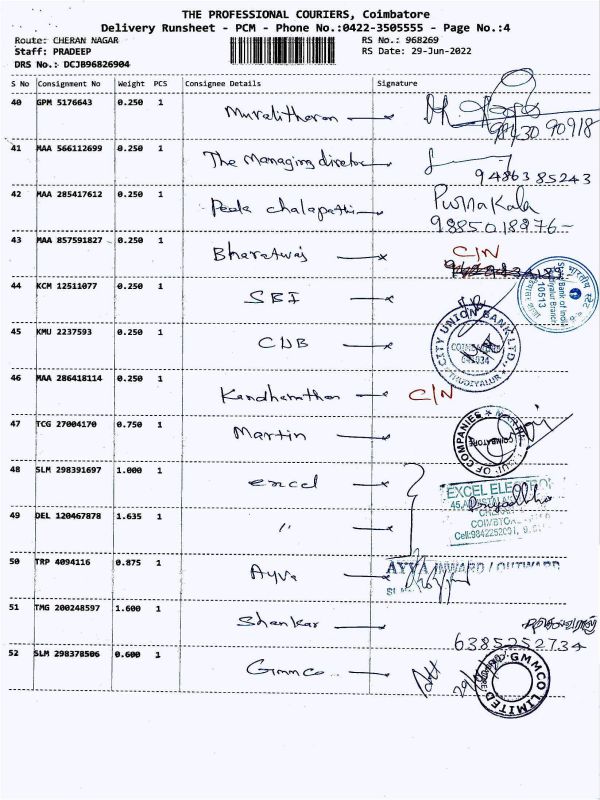 THE PROFESSIONAL COURIERS, Coimbatore
Delivery Runsheet - PCM - Phone No.:0422-3505555 - Page No.:4
Route: CHERAN NAGAR
RS No.: 968269
Staff: PRADEEP
RS Date: 29-Jun-2022
DRS No.: DCJB96826904
S No Consignment No Weight PCS Consignee Details Signature
40 GPM 5176643 0.250 1 Muralitharan
98430 90918
41 MAA 566112699 0.250 1 The Managing director
9486385243
42 MAA 285417612 0.250 1 Peela chalapathi Purnakala
9885018976
43 MAA 857591827 0.250 1 Bharatwaj C/N
44 KCM 12511077 0.250 1 SBI
State Bank of India
10513
45 KMU 2237593 0.250 1 CUB
CITY UNION BANK LTD.,
COIMBATORE
641034
THUDIYALUR
46 MAA 286418114 0.250 1 C/N
47 TCG 27004170 0.750 1 Martin
OF COMPANIES
COIMBATORE
48 SLM 298391697 1.000 1 excel
EXCEL ELECTRO
49 DEL 120467878 1.635 1 "
50 TRP 4094116 0.875 1 Ayva
AYVA INWARD / OUTWARD
51 TMG 200248597 1.600 1 Shankar
6385252734
52 SLM 298378506 0.600 1 Gmmco
GMMCO LIMITED